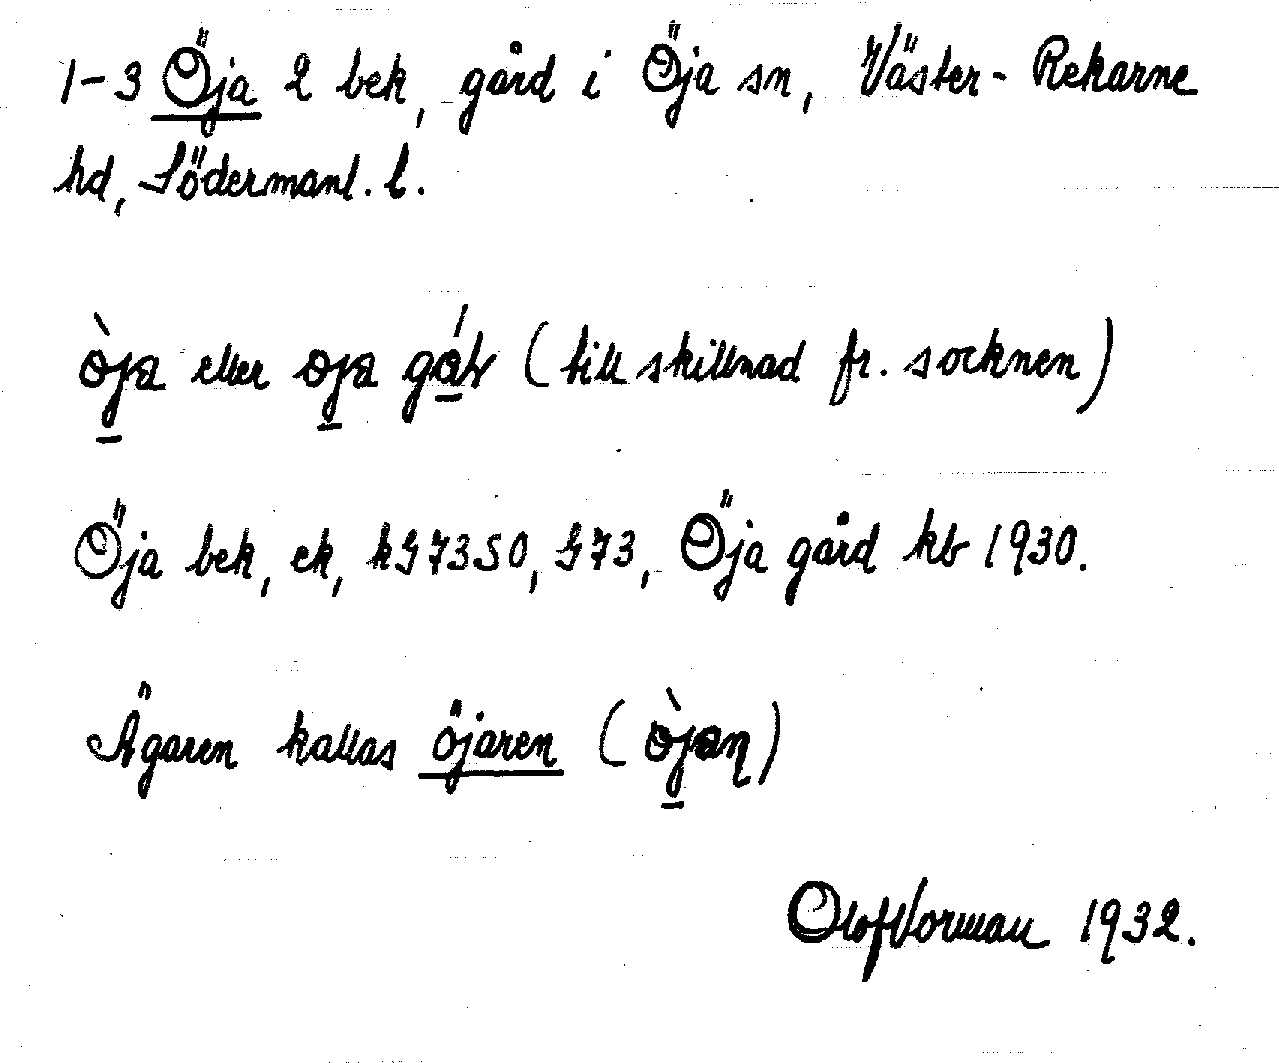 1-3 Öja 2 bek, gård i Öja sn, Väster-Rekarne
hd, Södermanl. l.
òja eller oja gáɽ (till skillnad fr. socknen)
Öja bek, ek, kG 7350, G 73, Öja gård kb 1930.
Ägaren kallas öjaren (òjaɳ)
Olof Vorman 1932.